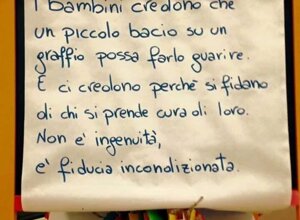 I bambini credono che
un piccolo bacio su un
graffio possa farlo guarire.
E ci credono perchè si fidano
di chi si prende cura di loro.
Non è ingenuità,
è fiducia incondizionata.